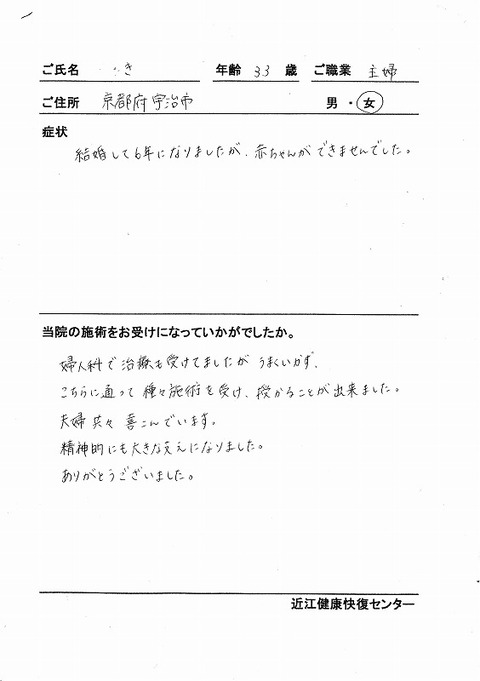 ご氏名 き 年齢 33 歳 ご職業 主婦
ご住所 京都府宇治市 男・女
症状
結婚して6年になりましたが、赤ちゃんができませんでした。
当院の施術をお受けになっていかがでしたか。
婦人科で治療も受けてましたがうまくいかず、
こちらに通って種々施術を受け、授かることが出来ました。
夫婦共々喜こんでいます。
精神的にも大きな支えになりました。
ありがとうございました。
近江健康快復センター